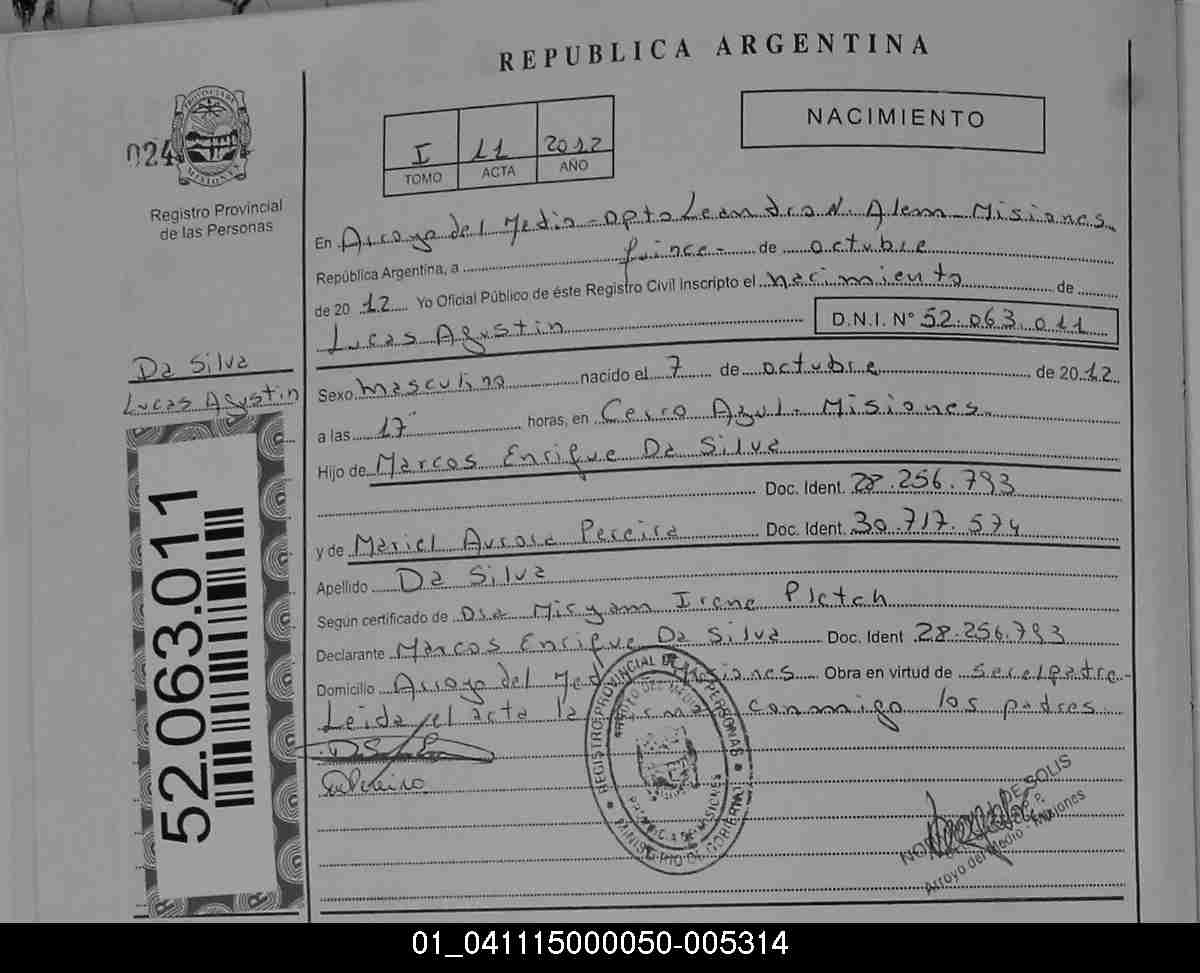 REPUBLICA ARGENTINA
PROVINCIA DE MISIONES
024
Registro Provincial
de las Personas
I 11 2012
TOMO ACTA AÑO
NACIMIENTO
En Arroyo del Medio - Dpto Leandro N. Alem - Misiones
República Argentina, a quince - de octubre
de 2012 Yo Oficial Público de éste Registro Civil inscripto el nacimiento de
Lucas Agustin D.N.I. N° 52.063.011
Da Silva
Lucas Agustin
Sexo masculino nacido el 7 de octubre de 2012
a las 17 horas, en Cerro Azul - Misiones
Hijo de Marcos Enrique Da Silva
Doc. Ident. 28.256.793
y de Mariel Aurora Pereira Doc. Ident. 30.717.574
Apellido Da Silva
Según certificado de Dra Miryam Irene Pletch
Declarante Marcos Enrique Da Silva Doc. Ident 28.256.793
Domicilio Arroyo del Medio Misiones Obra en virtud de ser el padre -
Leida el acta la firman conmigo los padres
52.063.011
REGISTRO PROVINCIAL DE LAS PERSONAS
MINISTERIO DE GOBIERNO
PROVINCIA DE MISIONES
DE SOLIS
Arroyo del Medio - Misiones
01_041115000050-005314